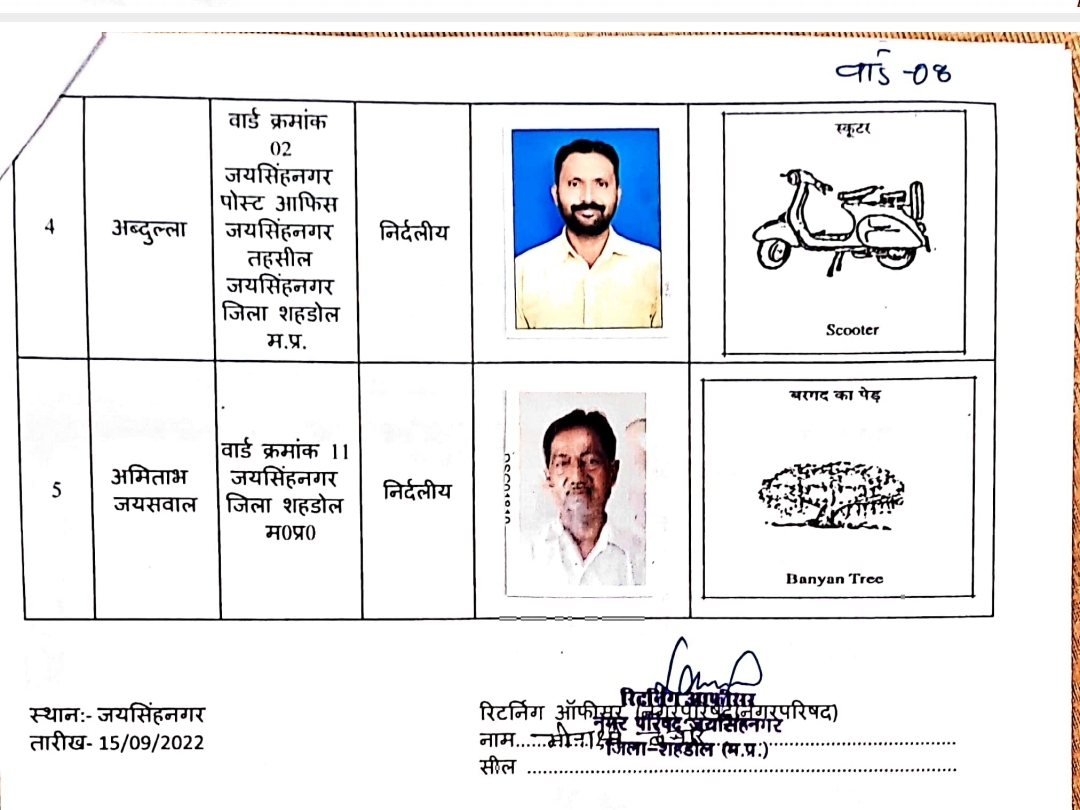 वार्ड -08
4
अब्दुल्ला
वार्ड क्रमांक
02
जयसिंहनगर
पोस्ट आफिस
जयसिंहनगर
तहसील
जयसिंहनगर
जिला शहडोल
म.प्र.
निर्दलीय
स्कूटर
Scooter
5
अमिताभ
जयसवाल
वार्ड क्रमांक 11
जयसिंहनगर
जिला शहडोल
म0प्र0
निर्दलीय
बरगद का पेड़
Banyan Tree
स्थान:- जयसिंहनगर
तारीख- 15/09/2022
रिटर्निग आफीसर
रिटर्निग ऑफीसर (नगरपरिषद/नगरपरिषद)
नगर परिषद जयसिंहनगर
नाम
जिला-शहडोल (म.प्र.)
सील